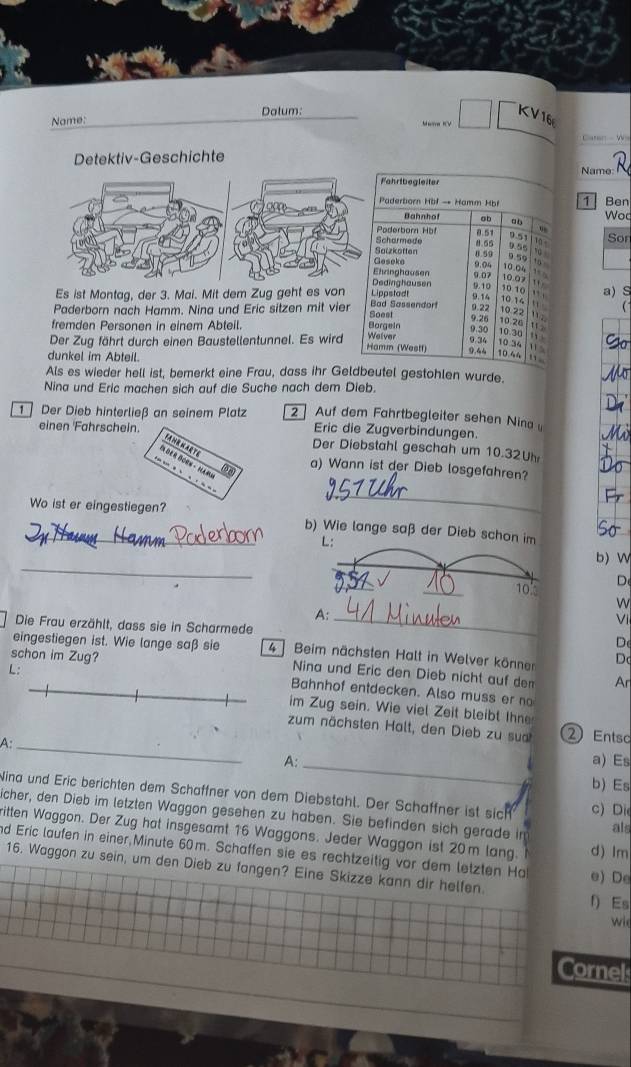 Name:
Datum:
KV 16
Detektiv-Geschichte
Fahrtbegleiter
Paderborn Hbf → Hamm Hbf
Bahnhof ab ab
Paderborn Hbf 8.51 9.51
Scharmede 8.55 9.55
Salzkotten 8.59 9.59
Geseke 9.04 10.04
Ehringhausen 9.07 10.07
Dedinghausen 9.10 10.10
Lippstadt 9.14 10.14
Bad Sassendorf 9.22 10.22
Soest 9.26 10.26
Borgeln 9.30 10.30
Welver 9.34 10.34
Hamm (Westf) 9.44 10.44
Es ist Montag, der 3. Mai. Mit dem Zug geht es von
Paderborn nach Hamm. Nina und Eric sitzen mit vier
fremden Personen in einem Abteil.
Der Zug fährt durch einen Baustellentunnel. Es wird
dunkel im Abteil.
Als es wieder hell ist, bemerkt eine Frau, dass ihr Geldbeutel gestohlen wurde.
Nina und Eric machen sich auf die Suche nach dem Dieb.
1 Der Dieb hinterließ an seinem Platz
einen Fahrschein.
FAHRKARTE
Wo ist er eingestiegen?
Hamm Paderborn
2 Auf dem Fahrtbegleiter sehen Nina u
Eric die Zugverbindungen.
Der Diebstahl geschah um 10.32 Uhr
a) Wann ist der Dieb losgefahren?
9.51 Uhr
b) Wie lange saß der Dieb schon im
L:
9,51 ✓ 10 10.3
A: 41 Minuten
Die Frau erzählt, dass sie in Scharmede
eingestiegen ist. Wie lange saß sie
schon im Zug?
L:
A:
4 Beim nächsten Halt in Welver könne
Nina und Eric den Dieb nicht auf dem
Bahnhof entdecken. Also muss er no
im Zug sein. Wie viel Zeit bleibt Ihne
zum nächsten Halt, den Dieb zu su
A:
Nina und Eric berichten dem Schaffner von dem Diebstahl. Der Schaffner ist sich
icher, den Dieb im letzten Waggon gesehen zu haben. Sie befinden sich gerade im
ritten Waggon. Der Zug hat insgesamt 16 Waggons. Jeder Waggon ist 20 m lang. N
nd Eric laufen in einer Minute 60 m. Schaffen sie es rechtzeitig vor dem letzten Hal
16. Waggon zu sein, um den Dieb zu fangen? Eine Skizze kann dir helfen.
Name: R
1 Ben
Woc
Son
a) S
(
So
Mo
Di
Mi
Do
Fr
So
b) W
D
W
Vi
De
Do
Ar
2 Entsc
a) Es
b) Es
c) Die
als
d) Im
e) De
f) Es
wie
Cornels